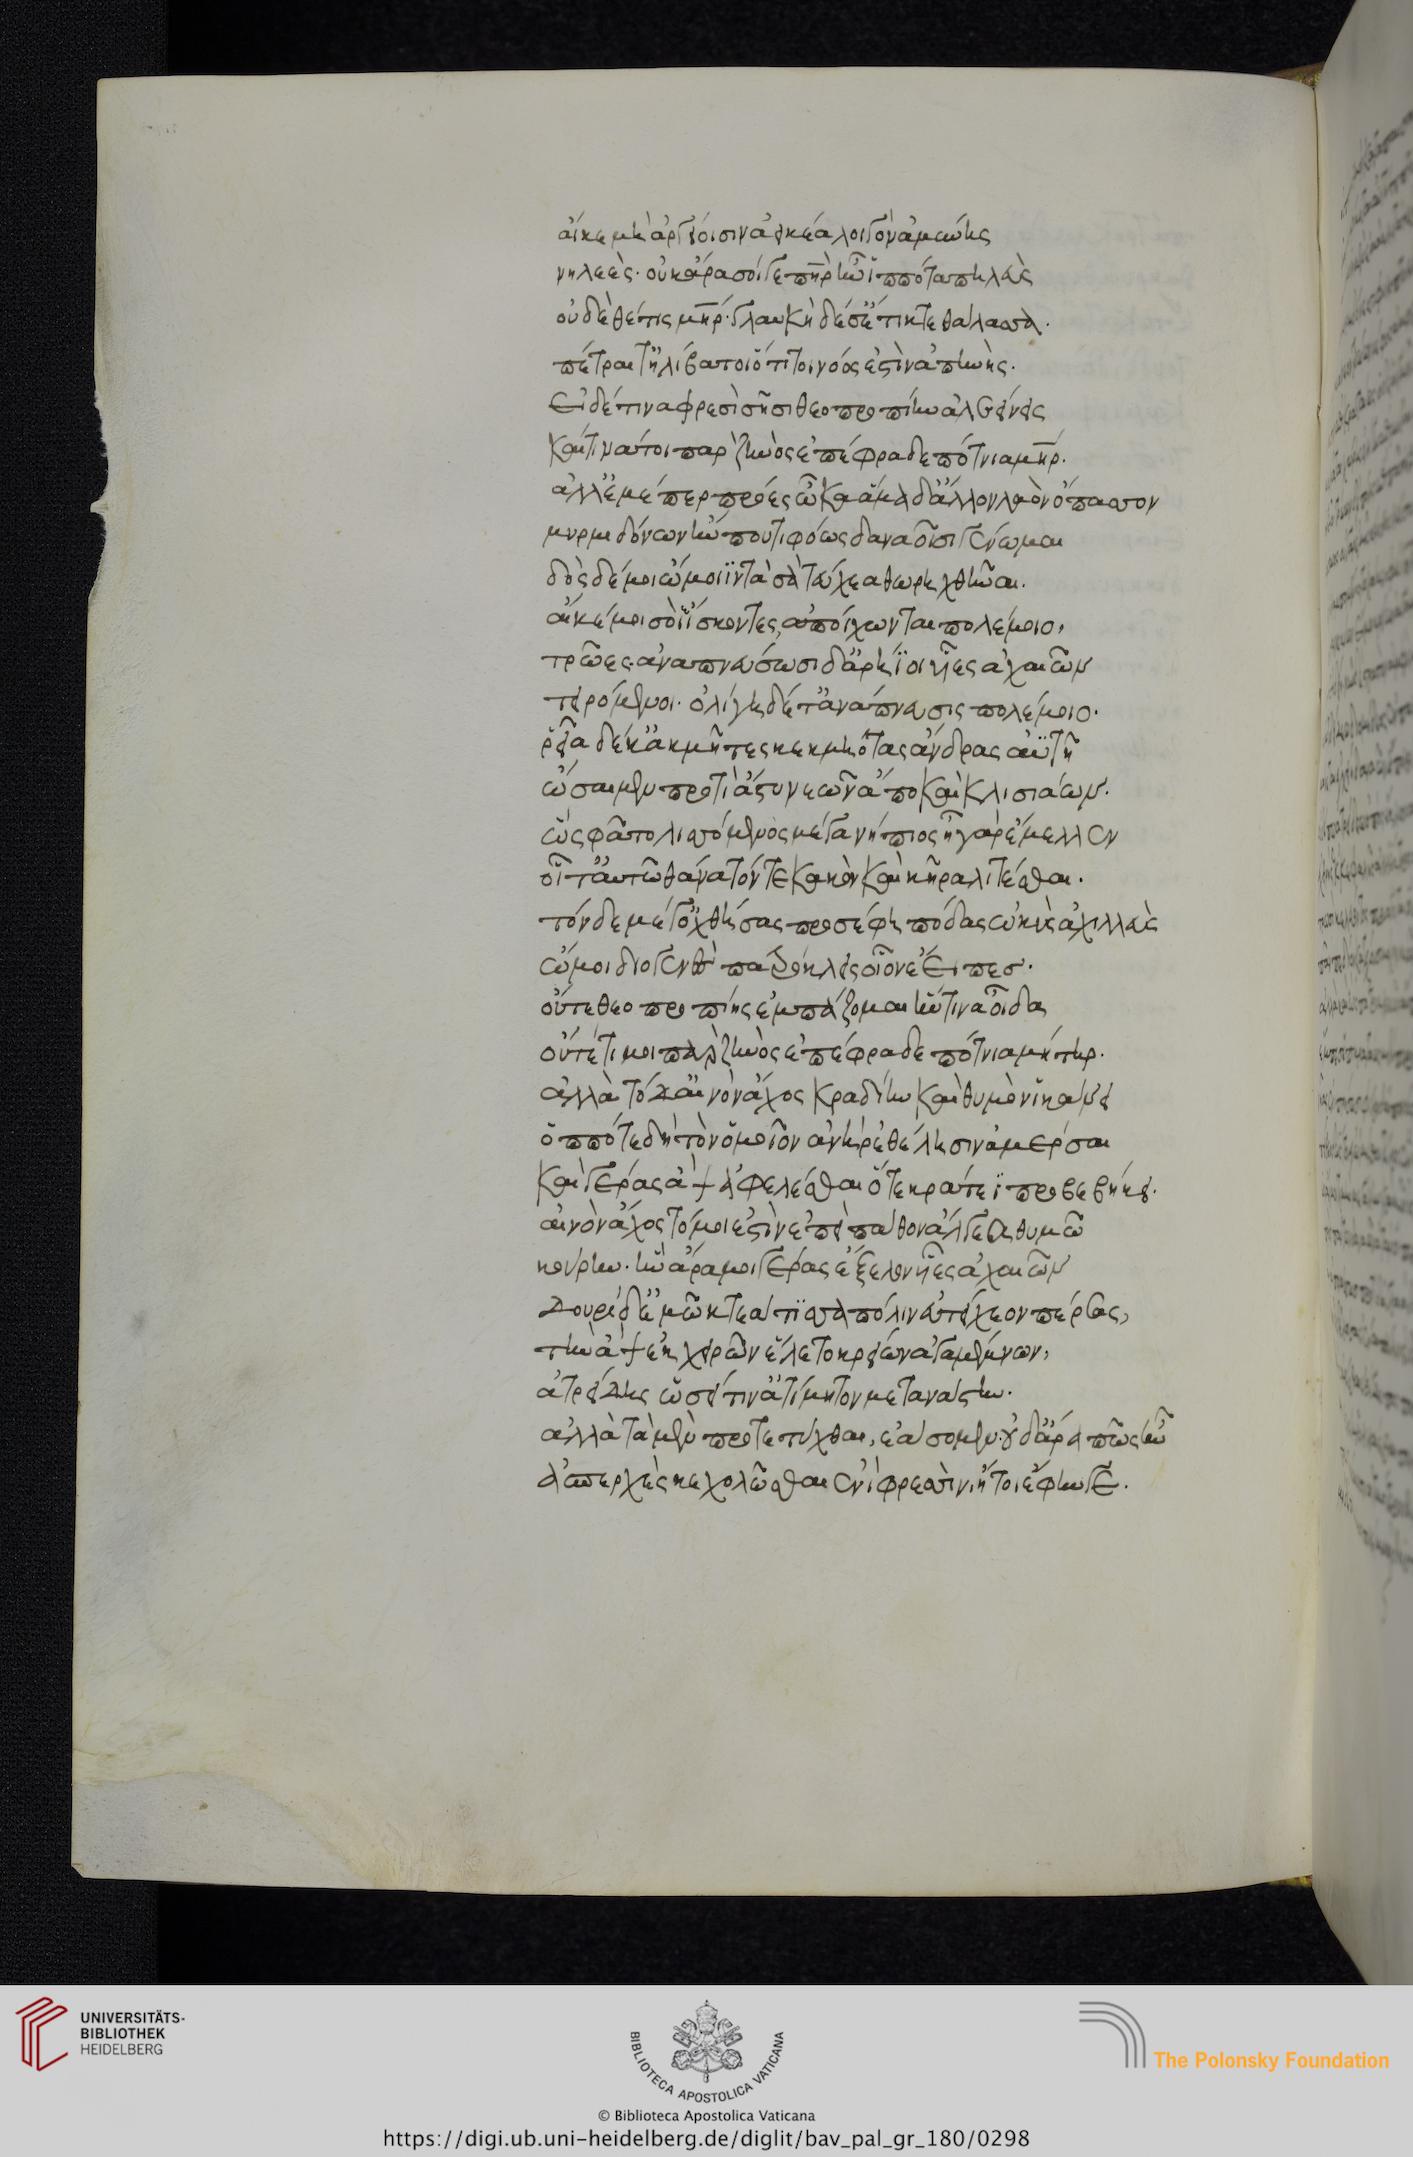 αἴκε μὴ ἀργείοισιν ἀεικέα λοιγὸν ἀμύνης
νηλεές· οὐκ ἄρα σοί γε πῆρ ἦν ἱππότα πηλεὺς
οὐδὲ θέτις μῆρ· γλαυκὴ δέ σε ἔτικτε θάλασσα·
πέτραι τ' ἠλίβατοι ὅτι τοι νόος ἐστὶν ἀπηνής·
Εἰ δέ τινα φρεσὶ σῇσι θεοπροπίην ἀλεείνεις
καί τινά τοι παρ ζηνὸς ἐπέφραδε πότνια μῆρ·
ἀλλ' ἐμέ περ πρόες ὦκα ἅμα δ' ἄλλον λαὸν ὄπασσον
μυρμιδόνων ἤν που τι φόως δαναοῖσι γένωμαι
δὸς δέ μοι ὤμοιϊν τὰ σὰ τεύχεα θωρηχθῆναι·
αἴ κέ μοι σοὶ ἴσκοντες, ἀπόσχωνται πολέμοιο,
τρῶες· ἀναπνεύσωσι δ' ἀρήϊοι υἷες ἀχαιῶν
τειρόμενοι· ὀλίγη δέ τ' ἀνάπνευσις πολέμοιο·
ῥεῖα δέ κ' ἀκμῆτες κεκμηότας ἄνδρας ἀϋτῇ
ὤσαιμεν προτὶ ἄστυ νεῶν ἄπο καὶ κλισιάων·
ὣς φάτο λισσόμενος μέγα νήπιος ἦ γὰρ ἔμελλεν
οἷ τ' αὐτῶ θάνατόν τε κακὸν καὶ κῆρα λιτέσθαι·
τὸν δὲ μέγ' ὀχθήσας προσέφη πόδας ὠκὺς ἀχιλλεὺς
ὤμοι διογενὲς πατρόκλεις οἷον ἔειπες·
οὔτε θεοπροπίης ἐμπάζομαι ἥν τινα οἶδα
οὔτέ τι μοι παρ ζηνὸς ἐπέφραδε πότνια μήτηρ·
ἀλλὰ τόδ' αἰνὸν ἄχος κραδίην καὶ θυμὸν ἱκάνει
ὁππότε δὴ τὸν ὁμοῖον ἀνὴρ ἐθέλησιν ἀμέρσαι
καὶ γέρας ἂψ ἀφελέσθαι ὅτε κράτεϊ προβεβήκει·
αἰνὸν ἄχος τό μοι ἐστὶν ἐπεὶ πάθον ἄλγεα θυμῶ
κούρην· ἣν ἄρα μοι γέρας ἔξελον υἷες ἀχαιῶν
δουρὶ δ' ἐμῶ κτεάτισσα πόλιν εὐτείχεον πέρσας,
τὴν ἂψ ἐκ χειρῶν ἕλετο κρείων ἀγαμέμνων,
ἀτρείδης ὡσεί τιν' ἀτίμητον μετανάστην·
ἀλλὰ τὰ μὲν προτετύχθαι, ἐάσομεν· οὐδ' ἄρα πως ἦν
ἀσπερχὲς κεχολῶσθαι ἐνὶ φρεσὶν· ἤτοι ἔφην γε·
UNIVERSITÄTS-
BIBLIOTHEK
HEIDELBERG
BIBLIOTECA APOSTOLICA VATICANA
The Polonsky Foundation
© Biblioteca Apostolica Vaticana
https://digi.ub.uni-heidelberg.de/diglit/bav_pal_gr_180/0298